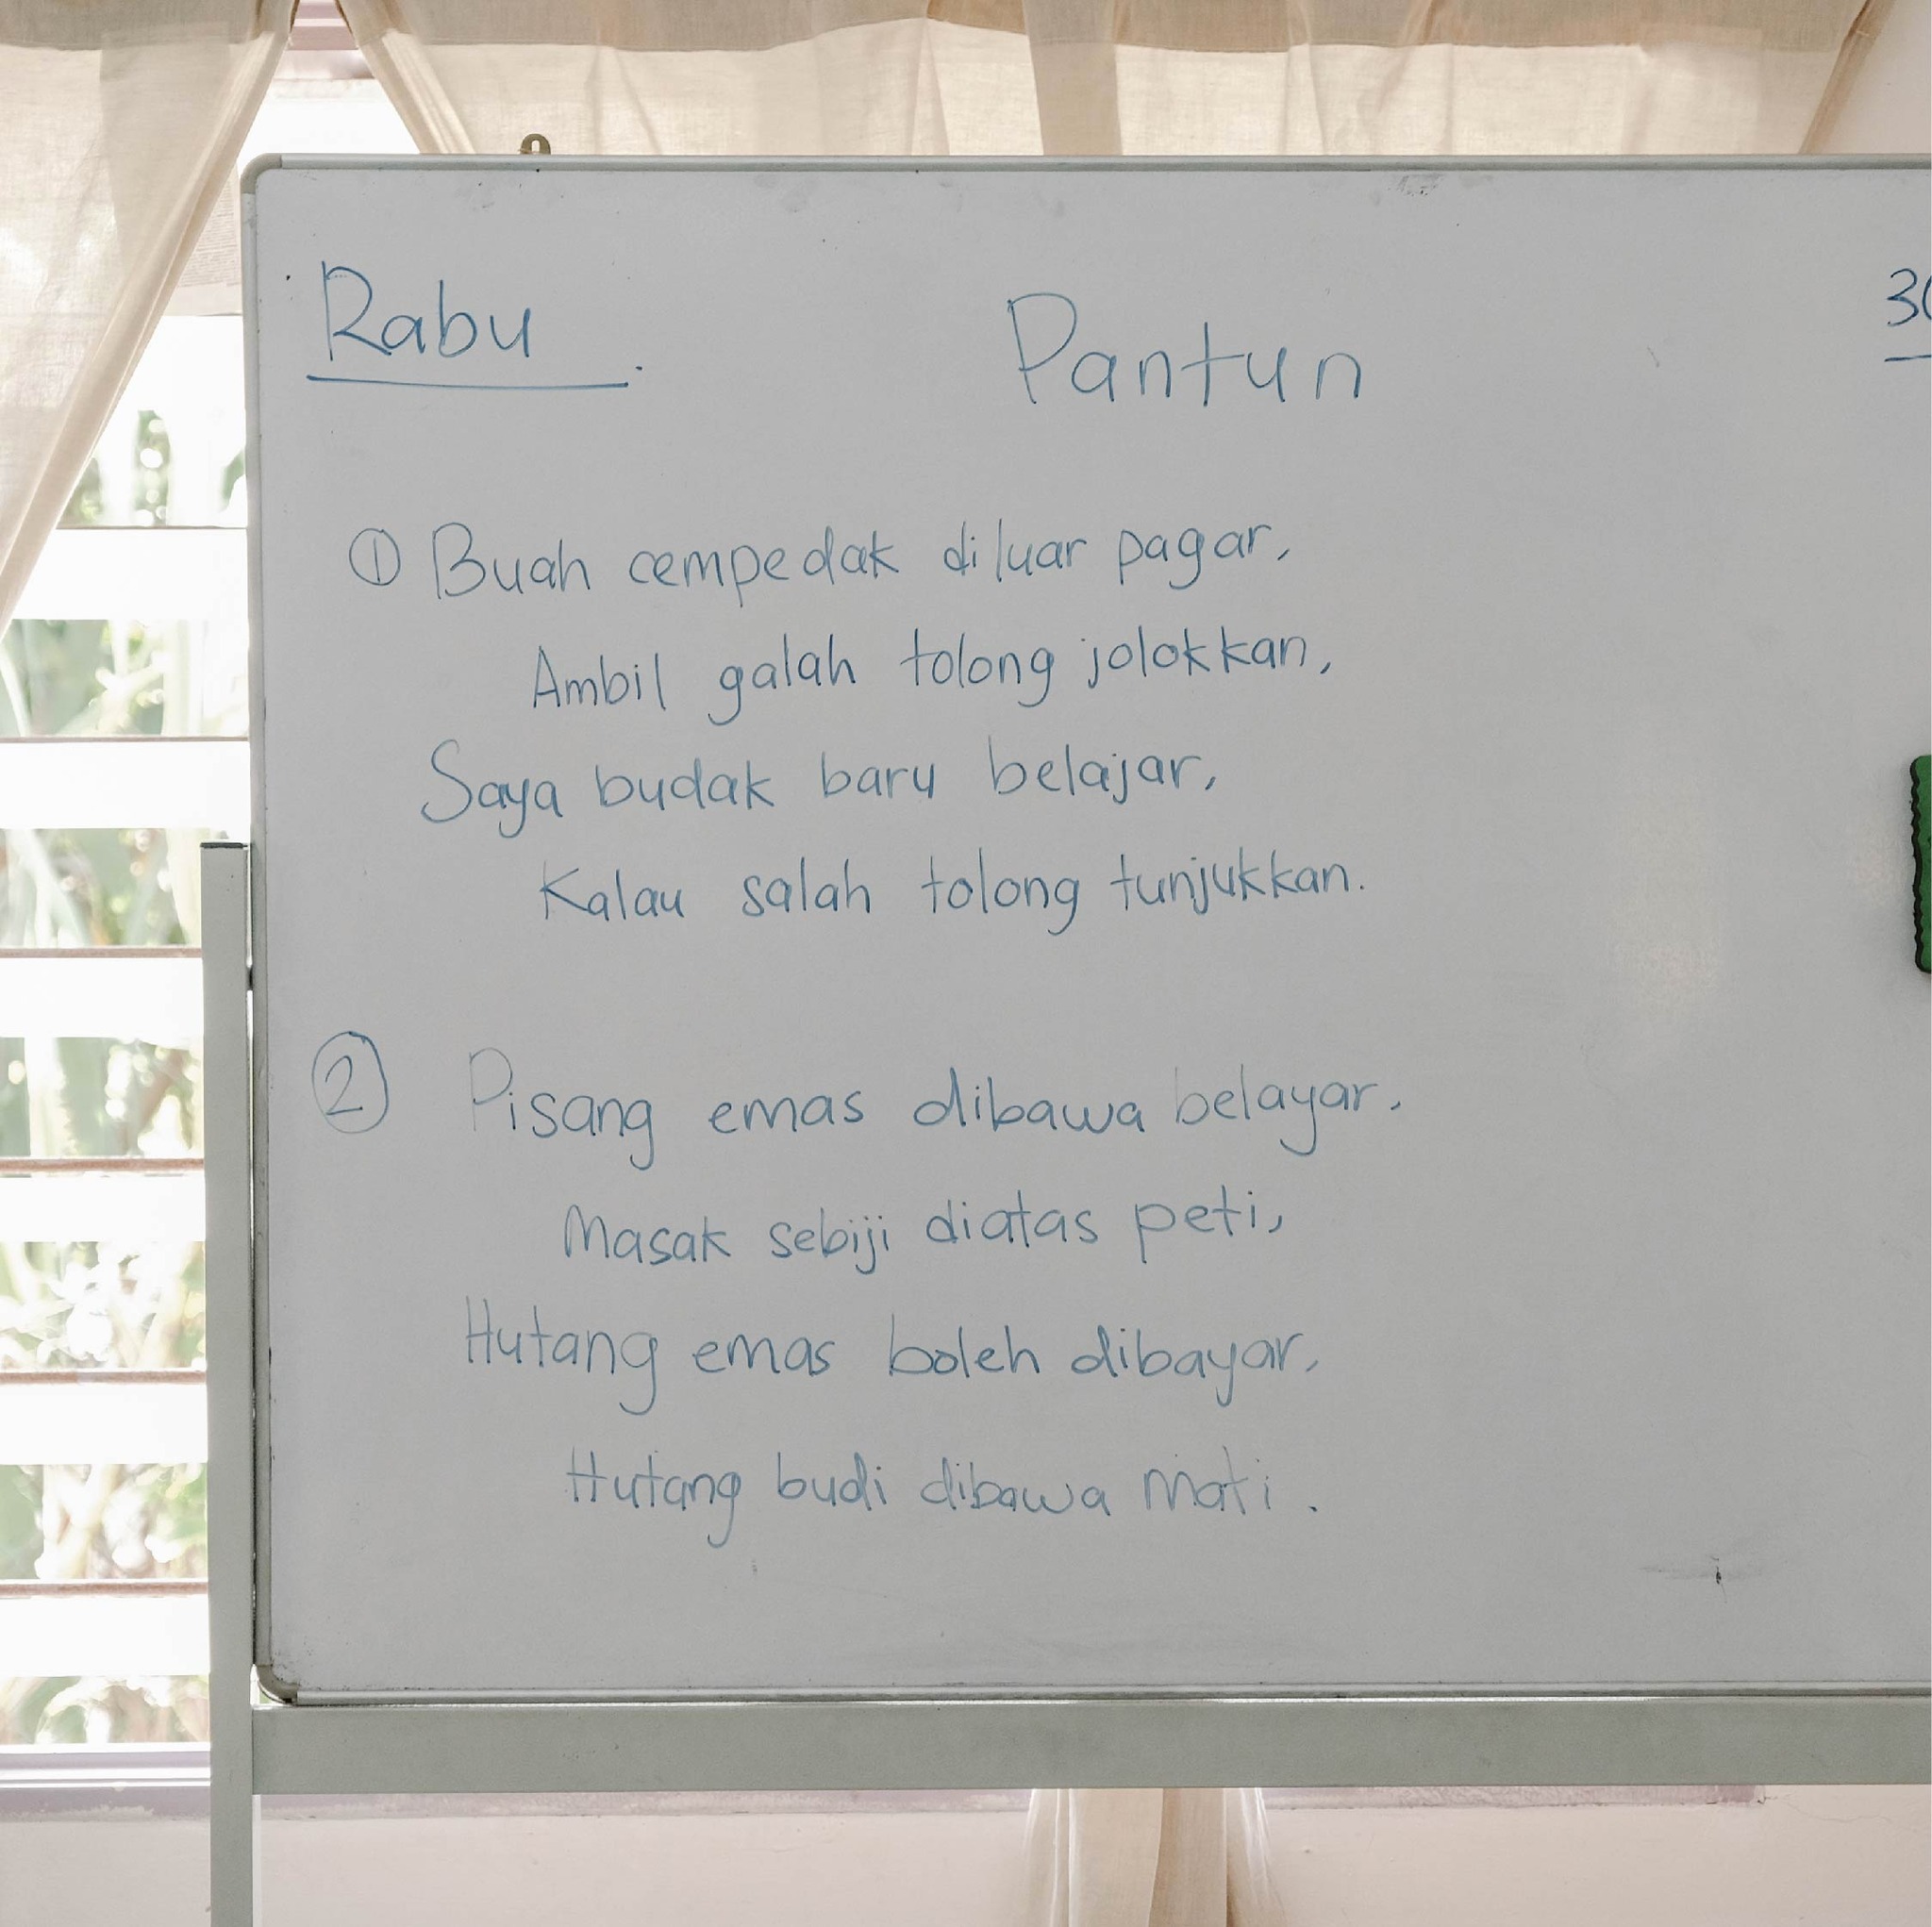 Rabu
Pantun
① Buah cempedak diluar pagar,
Ambil galah tolong jolokkan,
Saya budak baru belajar,
Kalau salah tolong tunjukkan.
② Pisang emas dibawa belayar,
Masak sebiji diatas peti,
Hutang emas boleh dibayar,
Hutang budi dibawa mati.